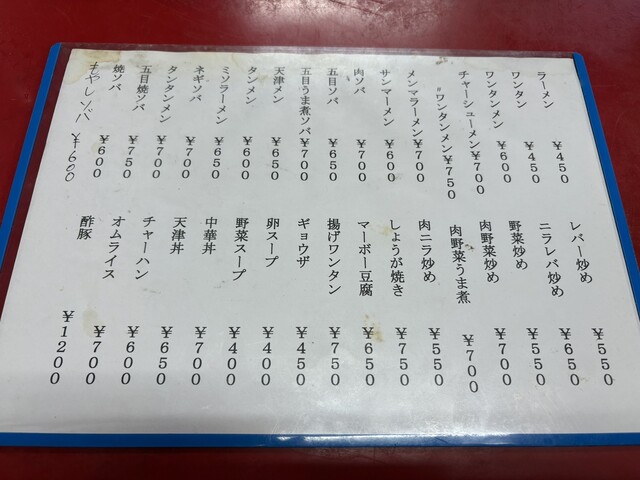 ラーメン ¥450
ワンタン ¥450
ワンタンメン ¥600
チャーシューメン ¥700
〃ワンタンメン ¥750
メンマラーメン ¥700
サンマーメン ¥600
肉ソバ ¥700
五目ソバ ¥650
五目うま煮ソバ ¥700
天津メン ¥650
タンメン ¥600
ミソラーメン ¥650
ネギソバ ¥700
タンタンメン ¥700
五目焼ソバ ¥750
焼ソバ ¥600
モヤシソバ ¥600
レバー炒め ¥550
ニラレバ炒め ¥650
野菜炒め ¥550
肉野菜炒め ¥700
肉野菜うま煮 ¥700
肉ニラ炒め ¥550
しょうが焼き ¥750
マーボー豆腐 ¥650
揚げワンタン ¥750
ギョウザ ¥450
卵スープ ¥400
野菜スープ ¥400
中華丼 ¥700
天津丼 ¥650
チャーハン ¥600
オムライス ¥700
酢豚 ¥1200